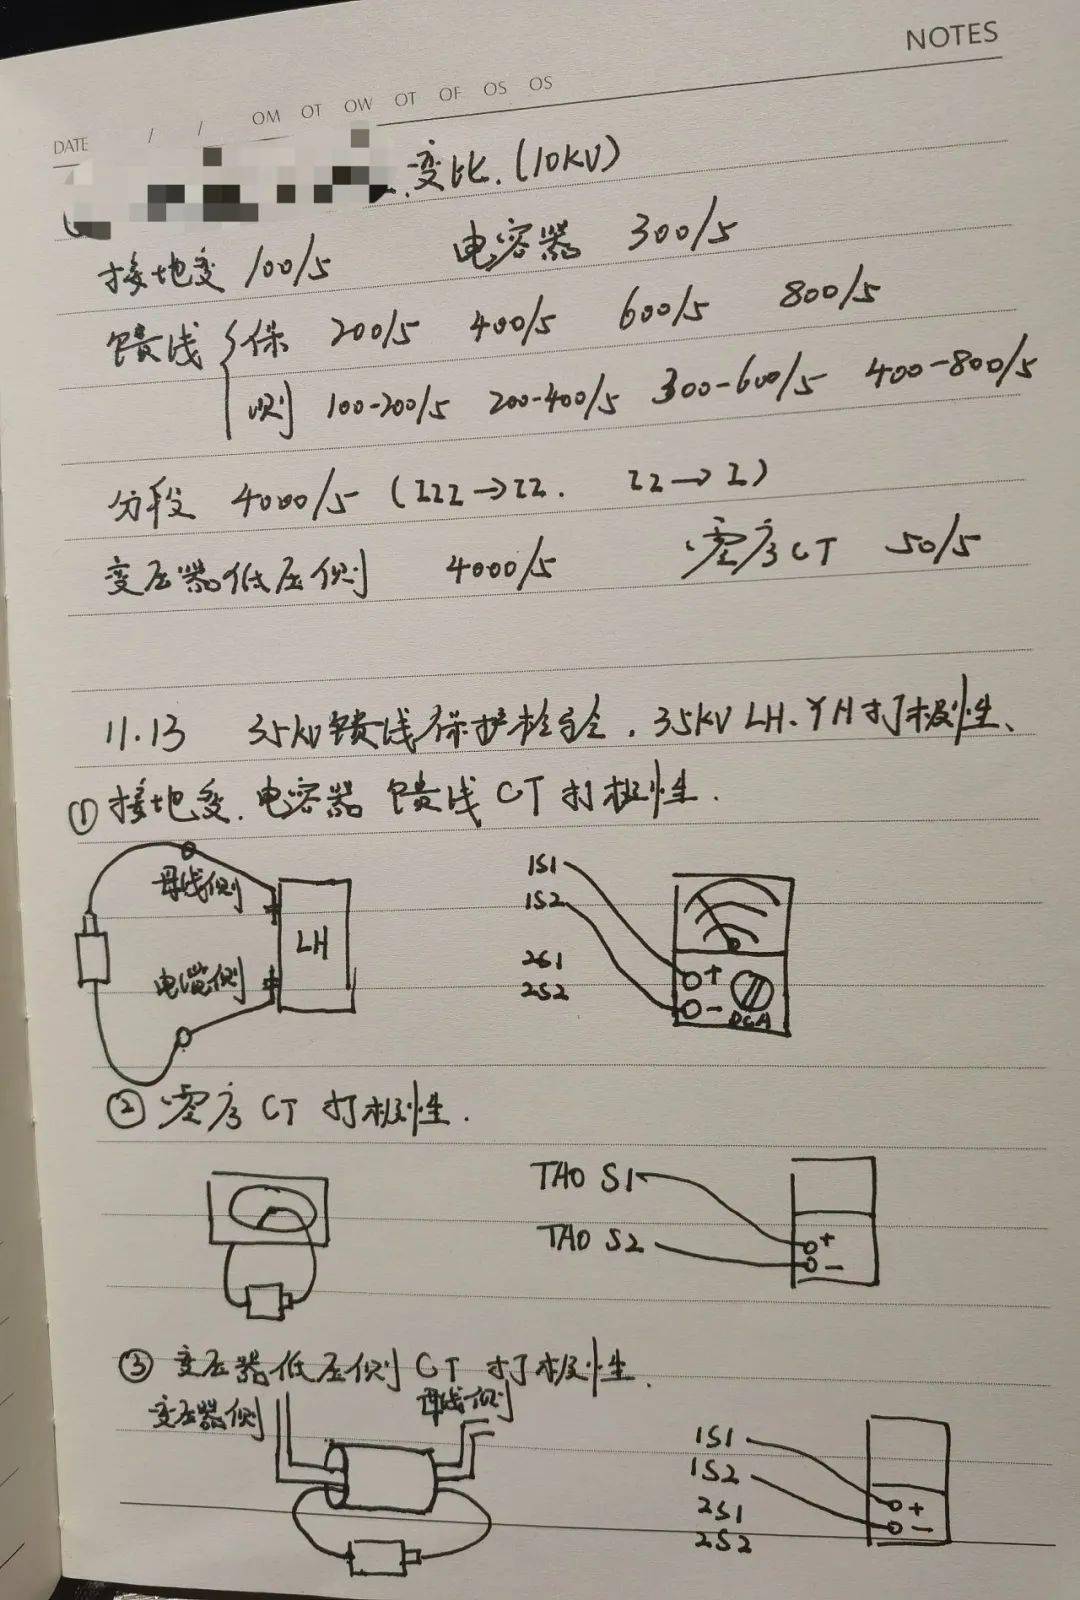 NOTES
DATE / / OM OT OW OT OF OS OS
变比.(10KV)
接地变 100/5 电容器 300/5
馈线 保 200/5 400/5 600/5 800/5
测 100-200/5 200-400/5 300-600/5 400-800/5
分段 4000/5 (III→II. II→I)
变压器低压侧 4000/5 零序CT 50/5
11.13 35kV馈线保护检验.35kV LH.YH打极性、
①接地变.电容器 馈线 CT 打极性.
母线侧
LH
电缆侧
1S1
1S2
2S1
2S2
+
-
DCA
②零序 CT 打极性.
TA0 S1
TA0 S2
+
-
③变压器低压侧 CT 打极性.
变压器侧 母线侧
1S1
1S2
2S1
2S2
+
-